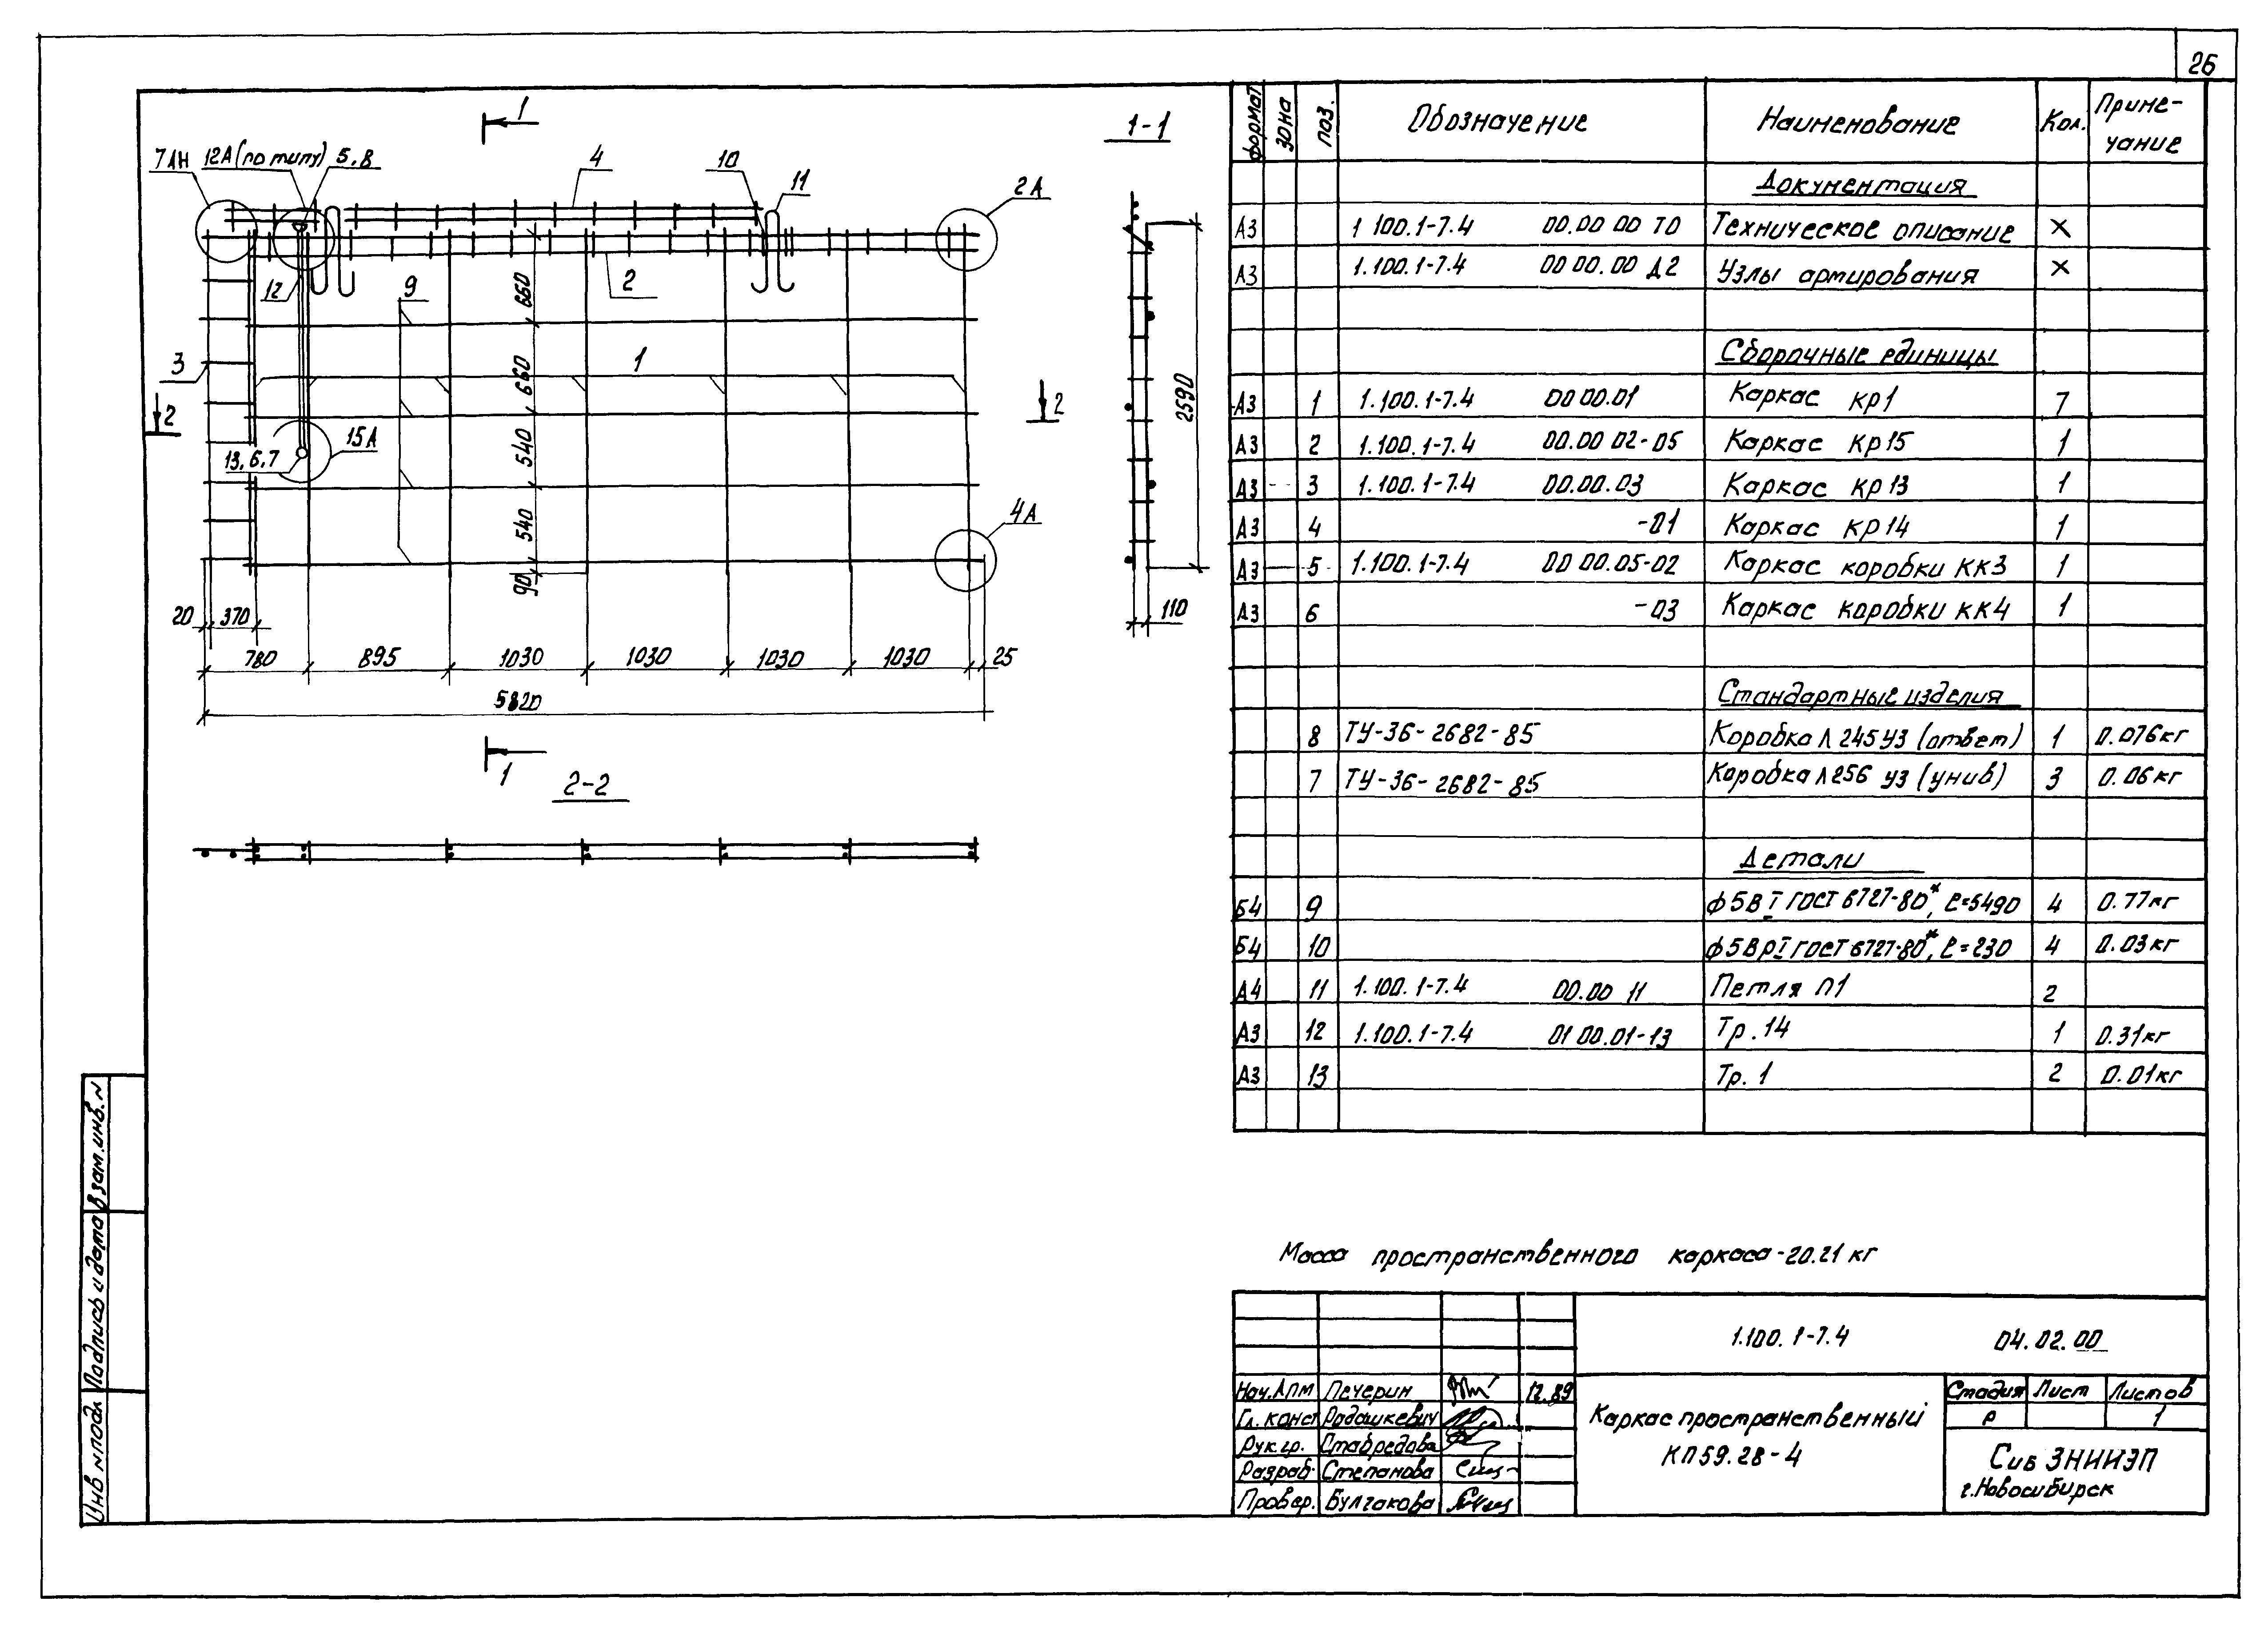 26
1
1-1
7АН 12А (по типу) 5,8
4
10
11
2А
12
9
2
660
3
1
660
2
2
2590
540
15А
13,6,7
540
4А
90
20 370
110
780 895 1030 1030 1030 1030 25
5820
1
2-2
Формат Зона Поз. Обозначение Наименование Кол. Приме-
чание
Документация
А3 1.100.1-7.4 00.00.00 ТО Техническое описание X
А3 1.100.1-7.4 00.00.00 Д2 Узлы армирования X
Сборочные единицы
А3 1 1.100.1-7.4 00.00.01 Каркас КР1 7
А3 2 1.100.1-7.4 00.00.02-05 Каркас КР15 1
А3 3 1.100.1-7.4 00.00.03 Каркас КР13 1
А3 4 -01 Каркас КР14 1
А3 5 1.100.1-7.4 00.00.05-02 Каркас коробки КК3 1
А3 6 -03 Каркас коробки КК4 1
Стандартные изделия
8 ТУ-36-2682-85 Коробка Л245У3 (ответ) 1 0.076кг
7 ТУ-36-2682-85 Коробка Л256 У3 (унив) 3 0.06кг
Детали
Б4 9 ф5ВI ГОСТ 6727-80*, ℓ=5490 4 0.77кг
Б4 10 ф5ВрI ГОСТ 6727-80*, ℓ=230 4 0.03кг
А4 11 1.100.1-7.4 00.00 11 Петля П1 2
А3 12 1.100.1-7.4 01.00.01-13 Тр.14 1 0.31кг
А3 13 Тр.1 2 0.01кг
Масса пространственного каркаса-20.21 кг
1.100.1-7.4 04.02.00
Нач.АПМ Печерин 12.89
Гл. конст Радашкевич
Рук.гр. Стабредова
Разраб. Степанова
Провер. Булгакова
Каркас пространственный
КП59.28-4
Стадия Лист Листов
Р 1
Сиб ЗНИИЭП
г.Новосибирск
Взам.инв.N
Подпись и дата
Инв Nподл